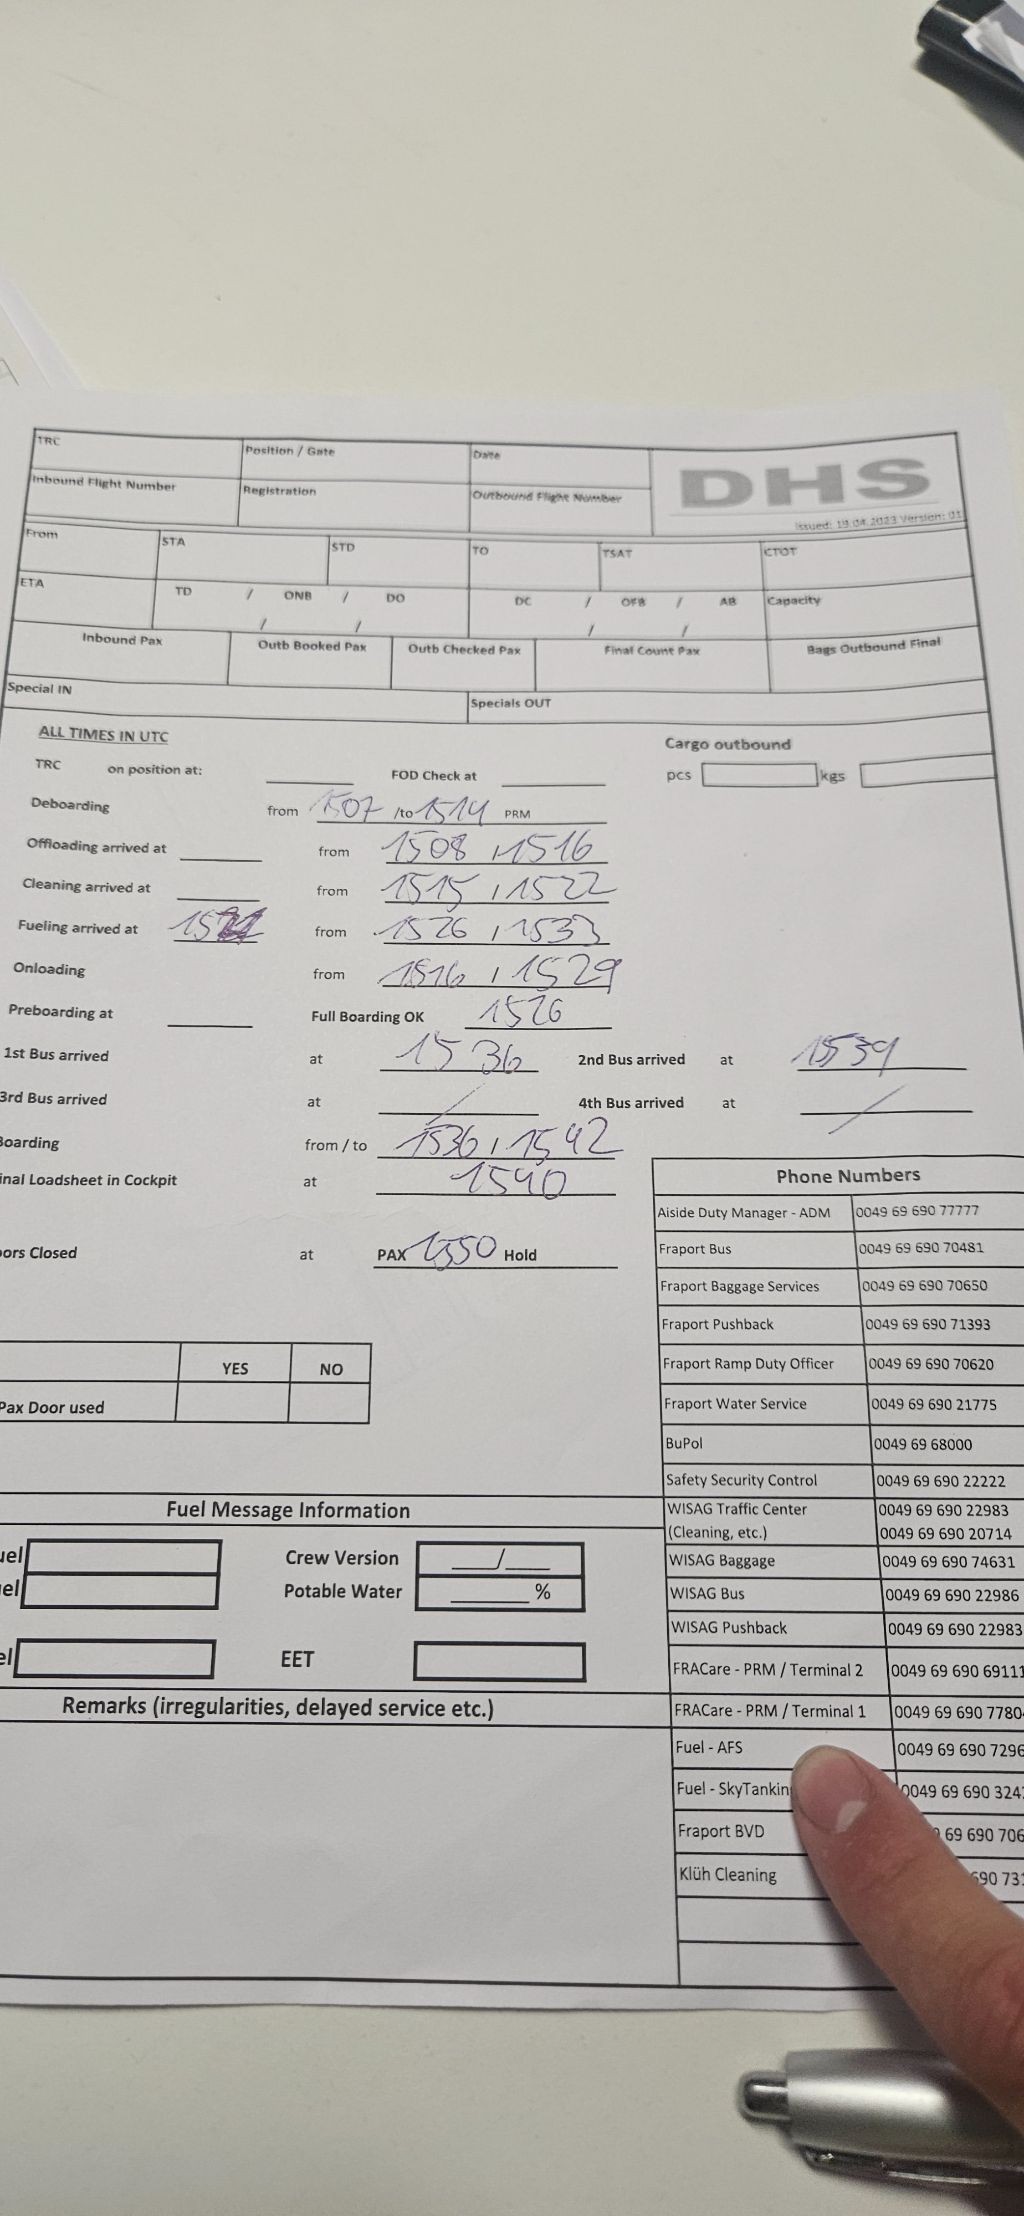 TRC Position / Gate Date
DHS
Inbound Flight Number Registration Outbound Flight Number
Issued: 19.04.2023 Version: 01
From STA STD TO TSAT CTOT
ETA TD / ONB / DO DC / OFB / AB Capacity
/ / / /
Inbound Pax Outb Booked Pax Outb Checked Pax Final Count Pax Bags Outbound Final
Special IN Specials OUT
ALL TIMES IN UTC
Cargo outbound
TRC on position at: FOD Check at pcs kgs
Deboarding from 1507 /to 1514 PRM
Offloading arrived at from 1508 / 1516
Cleaning arrived at from 1515 / 1522
Fueling arrived at from 1526 / 1533
Onloading from 1516 / 1529
Preboarding at Full Boarding OK 1526
1st Bus arrived at 1536 2nd Bus arrived at 1539
3rd Bus arrived at / 4th Bus arrived at /
Boarding from / to 1536 / 1542
inal Loadsheet in Cockpit at 1540
ors Closed at PAX 1550 Hold
YES NO
Pax Door used
Phone Numbers
Aiside Duty Manager - ADM 0049 69 690 77777
Fraport Bus 0049 69 690 70481
Fraport Baggage Services 0049 69 690 70650
Fraport Pushback 0049 69 690 71393
Fraport Ramp Duty Officer 0049 69 690 70620
Fraport Water Service 0049 69 690 21775
BuPol 0049 69 68000
Safety Security Control 0049 69 690 22222
WISAG Traffic Center 0049 69 690 22983
(Cleaning, etc.) 0049 69 690 20714
WISAG Baggage 0049 69 690 74631
WISAG Bus 0049 69 690 22986
WISAG Pushback 0049 69 690 22983
FRACare - PRM / Terminal 2 0049 69 690 69111
FRACare - PRM / Terminal 1 0049 69 690 7780
Fuel - AFS 0049 69 690 7296
Fuel - SkyTankin 0049 69 690 324
Fraport BVD 69 690 706
Klüh Cleaning 690 73
Fuel Message Information
uel Crew Version /
el Potable Water %
el EET
Remarks (irregularities, delayed service etc.)